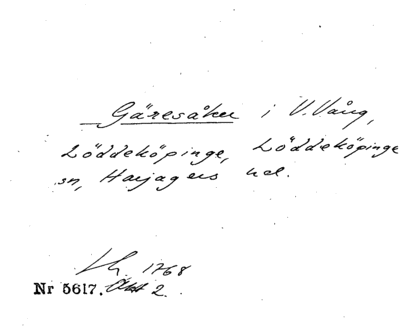 Gäresåker i V. Vång,
Löddeköpinge, Löddeköpinge
sn, Harjagers hd.
Lh. 1768
Nr 5617. Akt 2.